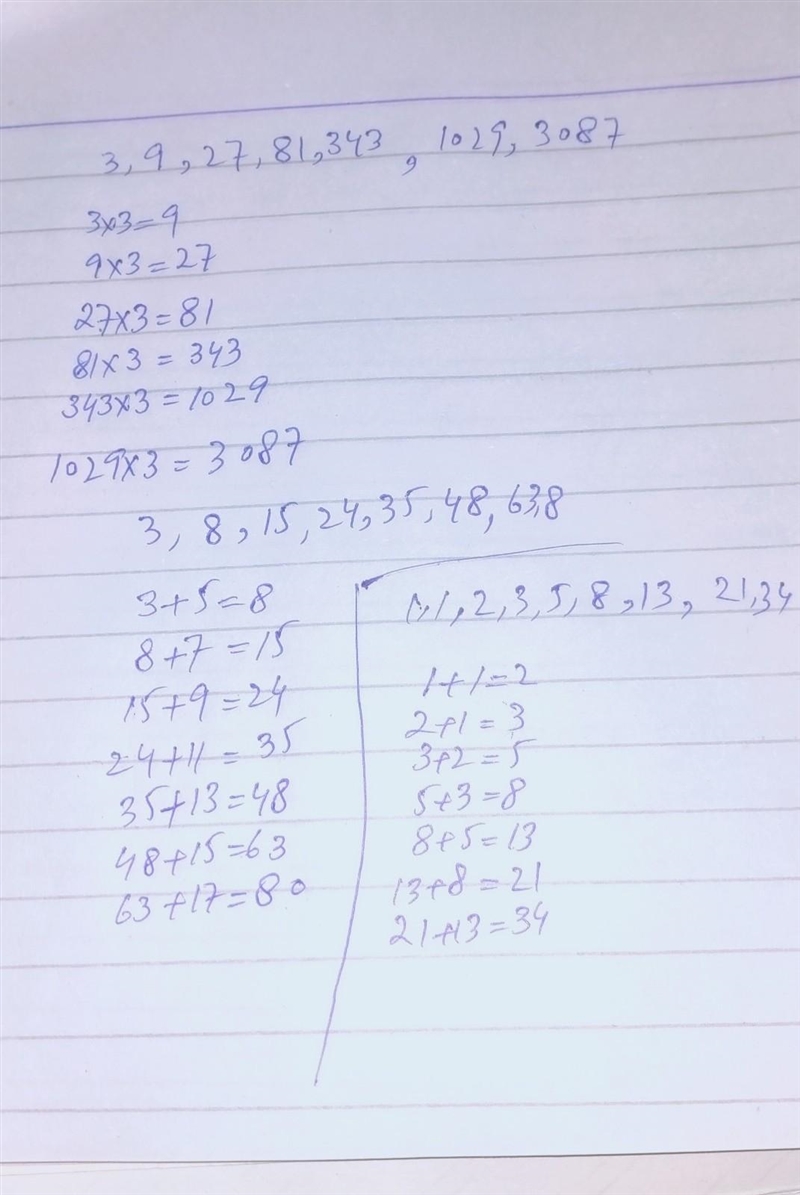 3, 9, 27, 81, 343, 1029, 3087
3×3=9
9×3=27
27×3=81
81×3=343
343×3=1029
1029×3=3087
3, 8, 15, 24, 35, 48, 63,8
3+5=8
8+7=15
15+9=24
24+11=35
35+13=48
48+15=63
63+17=80
1,1,2,3,5,8,13, 21,34
1+1=2
2+1=3
3+2=5
5+3=8
8+5=13
13+8=21
21+13=34